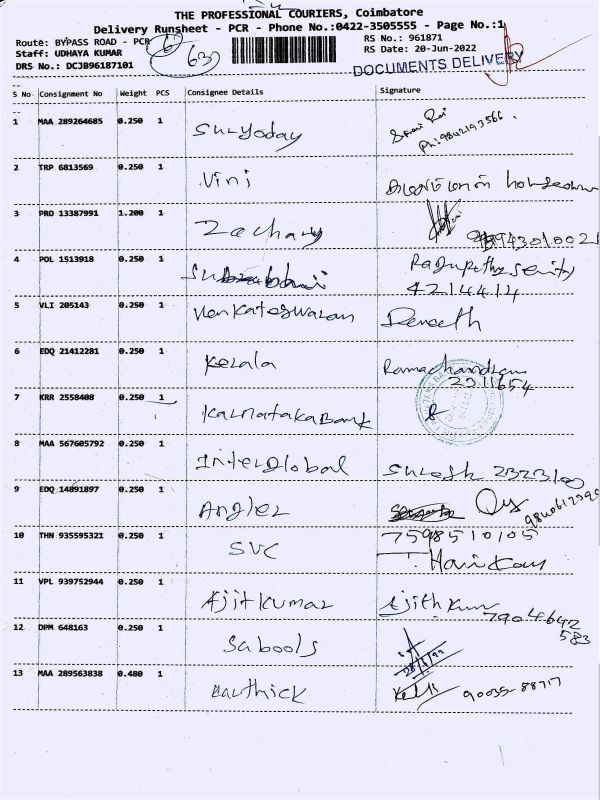 THE PROFESSIONAL COURIERS, Coimbatore
Delivery Runsheet - PCR - Phone No.:0422-3505555 - Page No.:1
Route: BYPASS ROAD - PCR
RS No.: 961871
Staff: UDHAYA KUMAR
RS Date: 20-Jun-2022
DRS No.: DCJB96187101
632
DOCUMENTS DELIVERY
S No Consignment No Weight PCS Consignee Details Signature
1 MAA 289264685 0.250 1 Suryoday
Ph: 9842193566
2 TRP 6813569 0.250 1 Vini
3 PRO 13387991 1.200 1 Zachary
9943010021
4 POL 1513918 0.250 1
4214414
5 VLI 205143 0.250 1 Venkateswaran
6 EDQ 21412281 0.250 1 Kerala Ramachandran
2311654
7 KRR 2558408 0.250 1 Karnataka Bank
8 MAA 567605792 0.250 1 Interglobal Suresh 2323100
9 EDQ 14891897 0.250 1 Angler
10 THN 935595321 0.250 1 SVC 7598510105
11 VPL 939752944 0.250 1 Ajitkumar Ajith Kum
7904642
583
12 DPM 648163 0.250 1 Sabools
13 MAA 289563838 0.480 1 Karthick
90035-88717